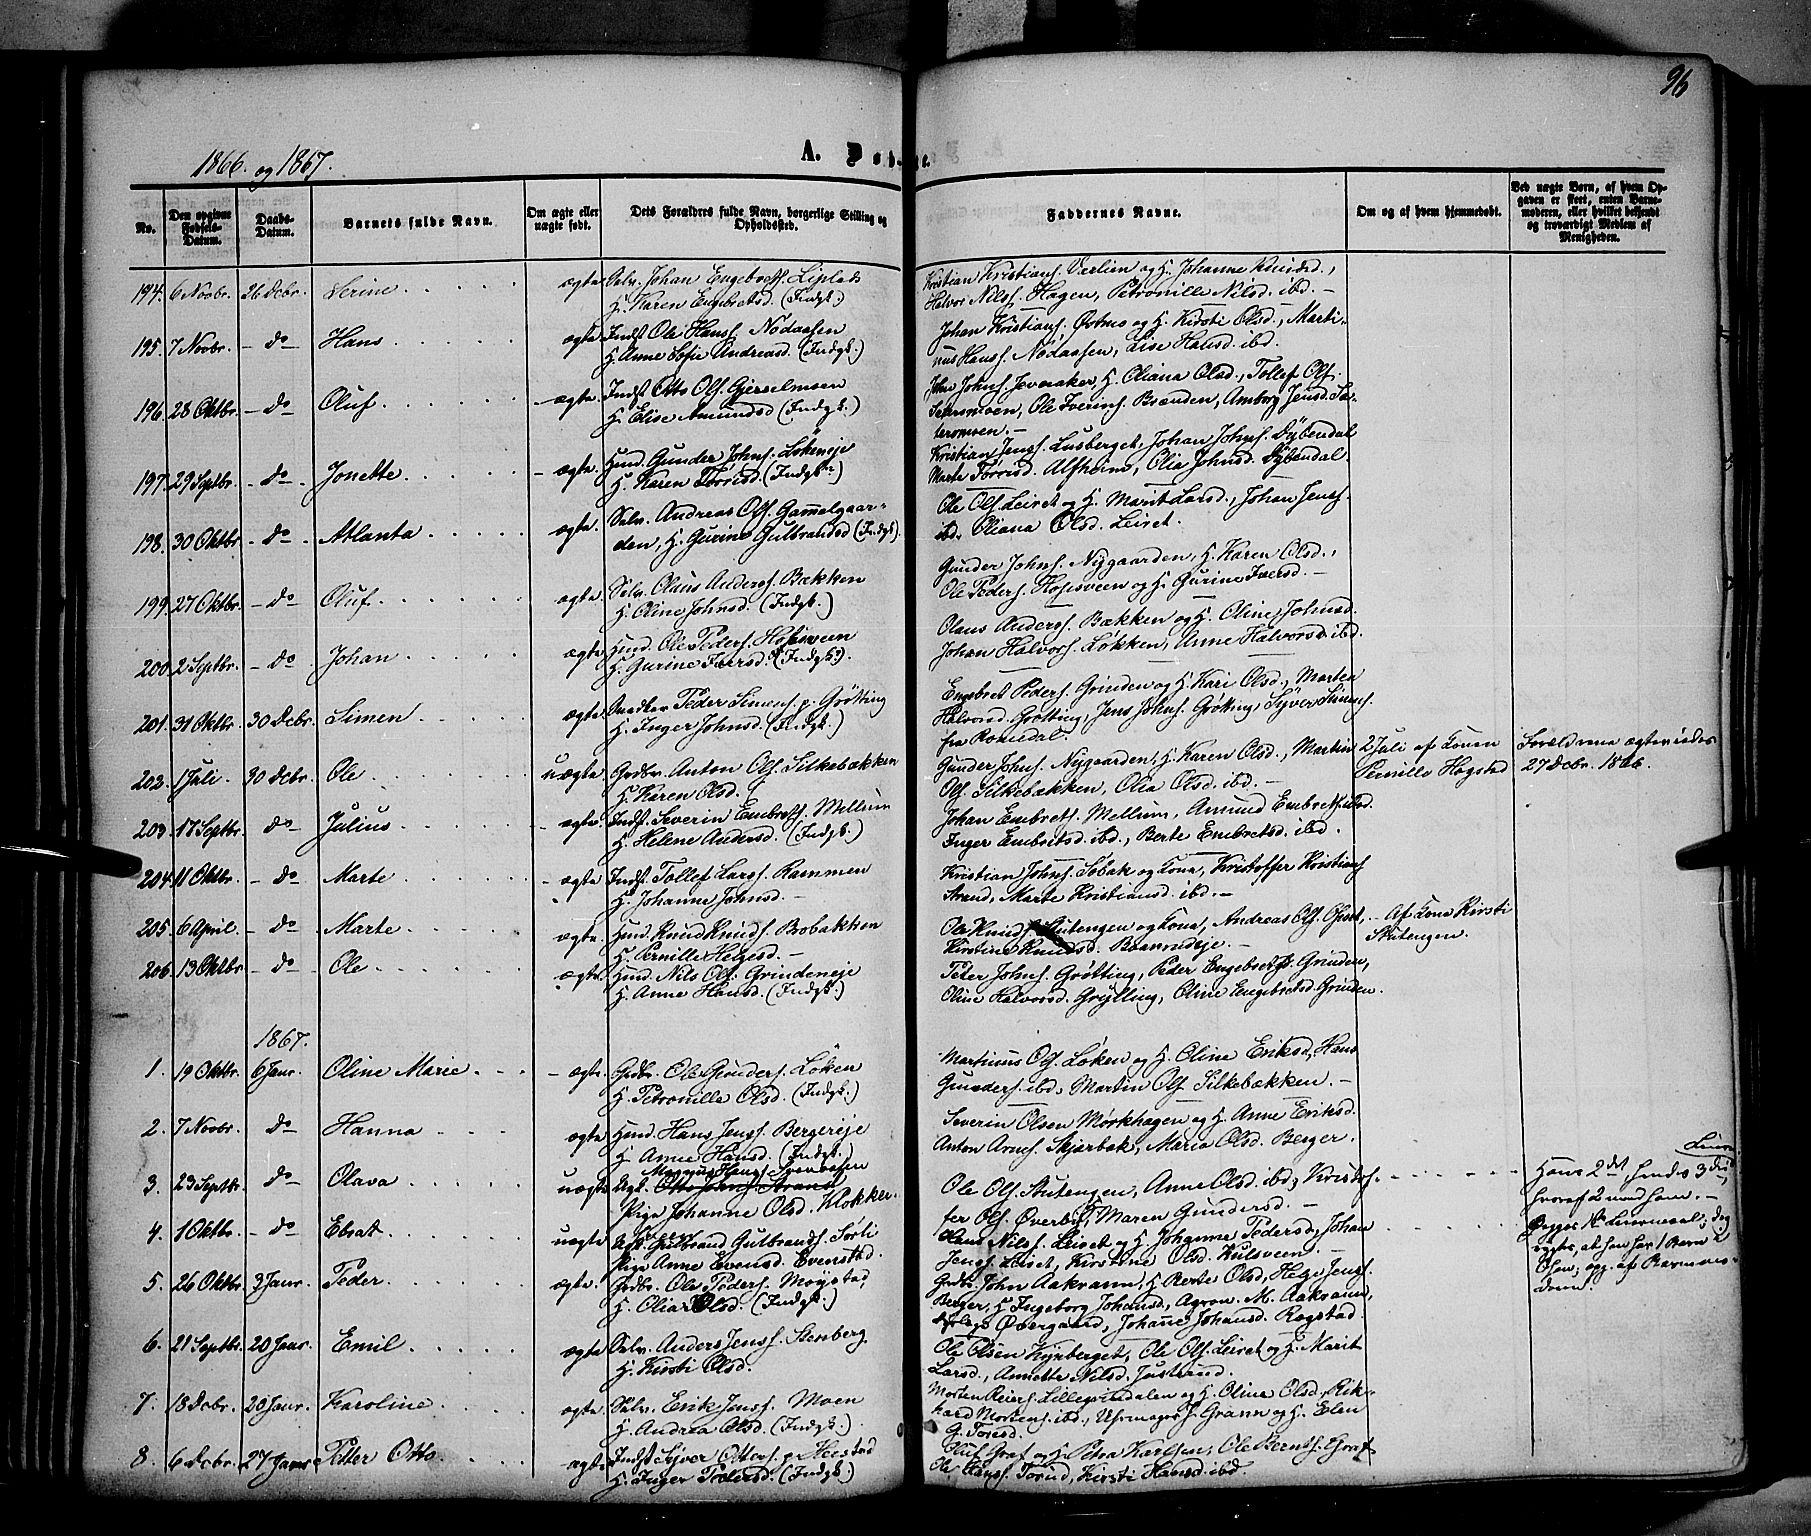 96
1866. og 1867.
A. Døbte.
No.
Den opgivne Fødsels-Datum.
Daabs-Datum.
Barnets fulde Navn.
Om ægte eller uægte født.
Dets Forældres fulde Navn, borgerlige Stilling og Opholdssted.
Faddernes Navne.
Om og af hvem hjemmedøbt.
Ved uægte Børn, af hvem Opgaven er skeet, enten Barnemoderen, eller hvilket bekjendt og troværdigt Medlem af Menigheden.
194. 6 Novbr. 26 Dcbr. Serine ægte Selv. Johan Engebrets. Liplads
H. Karen Engebretsd. (Indgk.)
Kristian Kristians. Værlien og H. Johanne Knudsd.,
Halvor Nils. Hagen, Petronille Nilsd. ibd.
195. 7 Novbr. do Hans ægte Indst Ole Hans. Nodaasen
H. Anne Sofie Andreasd. (Indgk.)
Johan Kristians. Østmo og H. Kirsti Olsd., Marti-
nus Hans. Nodaasen, Lise Hansd. ibd.
196. 28 Oktbr. do Oluf ægte Indst Otto Ols. Gjesselmoen
H. Elise Amundsd (Indgk.)
John Johns. Jøveraker, H. Oliana Olsd., Tollef Ols.
Sætermoen, Ole Iverins. Brænden, Amborg Jensd. Sæ-
termoen.
197. 29 Septbr. do Jonette ægte Husm. Gunder Johns. Løkeneje
H. Karen Torrisd. (Indgk.)
Kristian Jens. Lusberget, Johan Johns. Dybendal
Marte Torrisd. Alfheim, Olia Johnsd. Dybendal.
198. 30 Oktbr do Atlanta ægte Selv. Andreas Ols. Gammelgaar-
den, H. Gurine Gulbrandsd (Indgk.)
Ole Ols. Leiret og H. Marit Larsd., Johan Jens.
ibd. Oliana Olsd. Leiret.
199. 27 Oktbr. do Oluf ægte Selv. Olaus Anders. Bækken
H. Oline Johnsd. (Indgk.)
Gunder Johns. Nygaarden, H. Karen Olsd.,
Ole Peders. Hofsveen og H. Gurine Iversd.
200. 2 Septbr. do Johan ægte Husm. Ole Peders. Hofsveen
H. Gurine Iversd. (Indgk.)
Olaus Anders. Bækken og H. Oline Johnsd.
Johan Halvors. Løkken, Anne Halvorsd. ibd.
201. 31 Oktbr. 30 Dcbr. Simen ægte Peder Simens. p. Grøtting
H. Inger Johnsd. (Indgk.)
Engebret Peders. Grinden og H. Kari Olsd., Martea
Halvorsd. Grøtting, Jens Johns. Grøtting, Syver Simens.
fra Romedal.
202. 1 Juli. 30 Dcbr. Ole uægte Grdbr. Anton Ols. Silkebækken
H. Karen Olsd.
Gunder Johns. Nygaarden, H. Karen Olsd., Martin
Ols. Silkebækken, Olia Olsd. ibd.
2 Juli af Konen
Pernille Hogstad
Forældrene ægteviedes
27 Dcbr. 1866.
203. 17 Septbr. do Julius ægte Indst. Severin Embrets. Mellum
H. Helene Andersd. (Indgk.)
Johan Embrets. Mellum, Amund Embrets. ibd.
Inger Embretsd. ibd., Berte Embretsd. ibd.
204. 11 Oktbr. do Marte ægte Indst. Tollef Lars. Rammen
H. Johanne Johnsd.
Kristian Johns. Søbak og Kone, Kristoffer Kristians.
Strand, Marte Kristiansd. ibd.
205. 6 April. do Marte ægte Husm. Knud Knuds. Bobakken
H. Pernille Helgesd.
Ole Knuds. Stutengen og Kone, Andreas Ols.
Kirstine Knudsd.
Af Kone Kirsti
Stutengen.
206. 13 Oktbr do Ole ægte Husm. Nils Ols. Grindeneje
H. Anne Hansd. (Indgk.)
Peter Johns. Grøtting, Peder Engebrets. Grinden,
Oline Halvorsd. Grøtting, Oline Engebretsd. Grinden.
1867.
1. 19 Oktbr. 6 Janr. Oline Marie ægte Grdbr. Ole Gunders. Løken
H. Petronille Olsd. (Indgk.)
Martinus Ols. Løken og H. Oline Eriksd, Hans
Gunders. ibd, Martin Ols. Silkebækken.
2. 7 Novbr. do Hanna ægte Husm. Hans Jens. Bergereje
H. Anne Hansd. (Indgk.)
Severin Olsen Mørkhagen og H. Anne Eriksd.
Anton Arnes. Skjærbæk, Maria Olsd. Berger.
3. 23 Septbr. do Olava uægte Ungk. Magnus Hans. Svenaasen
Otto Johns. Strand
Pige Johanne Olsd. Klokker.
Ole Ols. Stutengen, Anne Olsd. ibd, Kristof-
fer Ols. Øverby, Maren Gundersd.
Hans 2det hendes 3die,
hvoraf 2 med ham.
4. 1 Oktbr. do Ebrat uægte Ungk. Gulbrand Gulbrands. Sørli
Pige Anne Evensd. Evenstad.
Hans Nils. Leiret og H. Johanne Pedersd, Johan
Jens. Leiret, Kirstine Olsd. Kulsveen.
5. 26 Oktbr. 3 Janr. Peder ægte Grdbr. Ole Peders. Moystad
H. Olia Olsd. (Indgk.)
Grdbr. John Aakrann, H. Berte Olsd, Helge Jens.
Berger, H. Ingeborg Johansd, Agron. M. Aakrann,
Øvergaard, Johanne Johansd. Rogstad.
6. 21 Septbr. 20 Janr. Emil ægte Selv. Anders Jens. Stenberg
H. Kirsti Olsd.
Ole Olsen Kynberget, Ole Ols. Leiret og H. Marit
Larsd., Annette Nilsd. Justrand.
7. 18 Dcbr. 20 Janr. Karoline ægte Selv. Erik Jens. Moen
H. Andrea Olsd. (Indgk.)
Morten Reiers. Lillegrindalen og H. Oline Olsd, Rik-
kard Mortens. ibd., Uhrmager J. Grann og H. Elen
G. Torisd.
8. 6 Dcbr. 27 Janr Petter Otto ægte Indst Syver Otters. p. Heistad
H. Inger Pedersd. (Indgk.)
Oluf Graf og H. Petra Karlsen, Ole Bernts. Graf
Ole Hans. Torud, Kirsti Hansd. ibd.